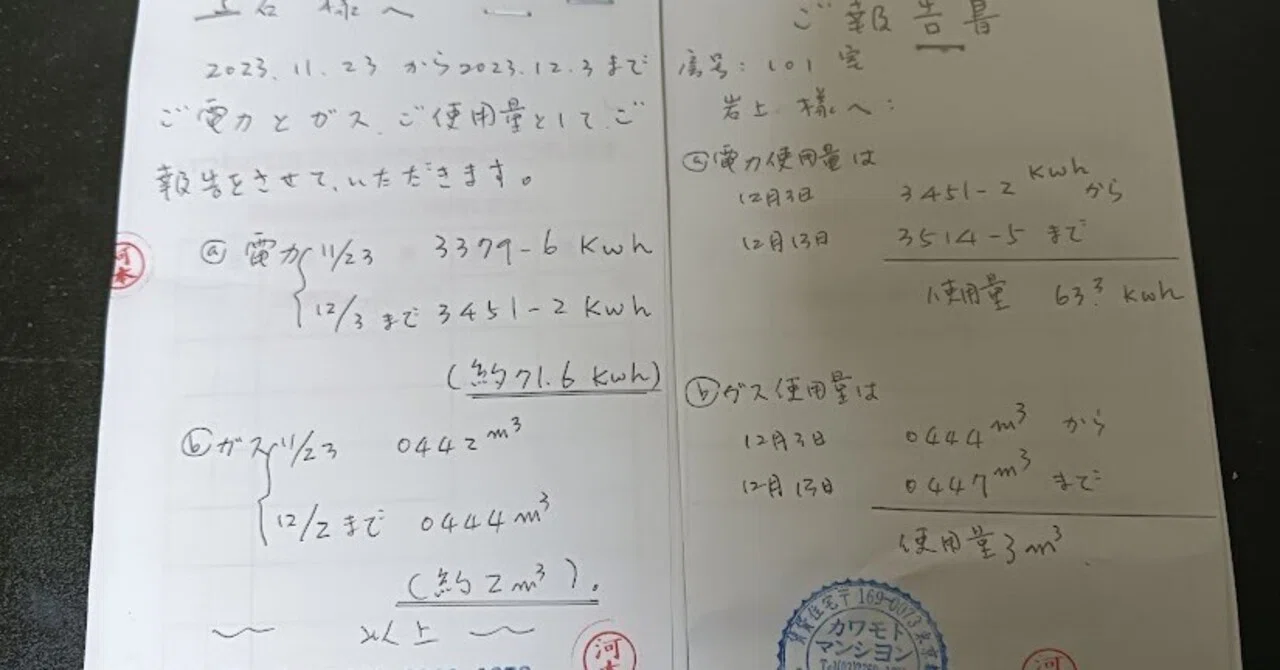 様へ
2023.11.23 から2023.12.3まで
ご電力とガス、ご使用量として、ご
報告をさせて、いただきます。
ⓐ 電力 11/23 3379-6 Kwh
12/3 まで 3451-2 Kwh
(約71.6 Kwh)
ⓑ ガス 11/23 0442 m³
12/2 まで 0444 m³
(約2m³)。
以上
河本
河本
ご報告書
房号: 101室
岩上 様へ:
ⓐ電力使用量は
12月3日 3451-2 Kwh から
12月13日 3514-5 まで
使用量 63.3 Kwh
ⓑガス使用量は
12月3日 0444 m³ から
12月13日 0447 m³ まで
使用量3m³
賃貸住宅〒169-0073東京都
カワモト
マンション
河